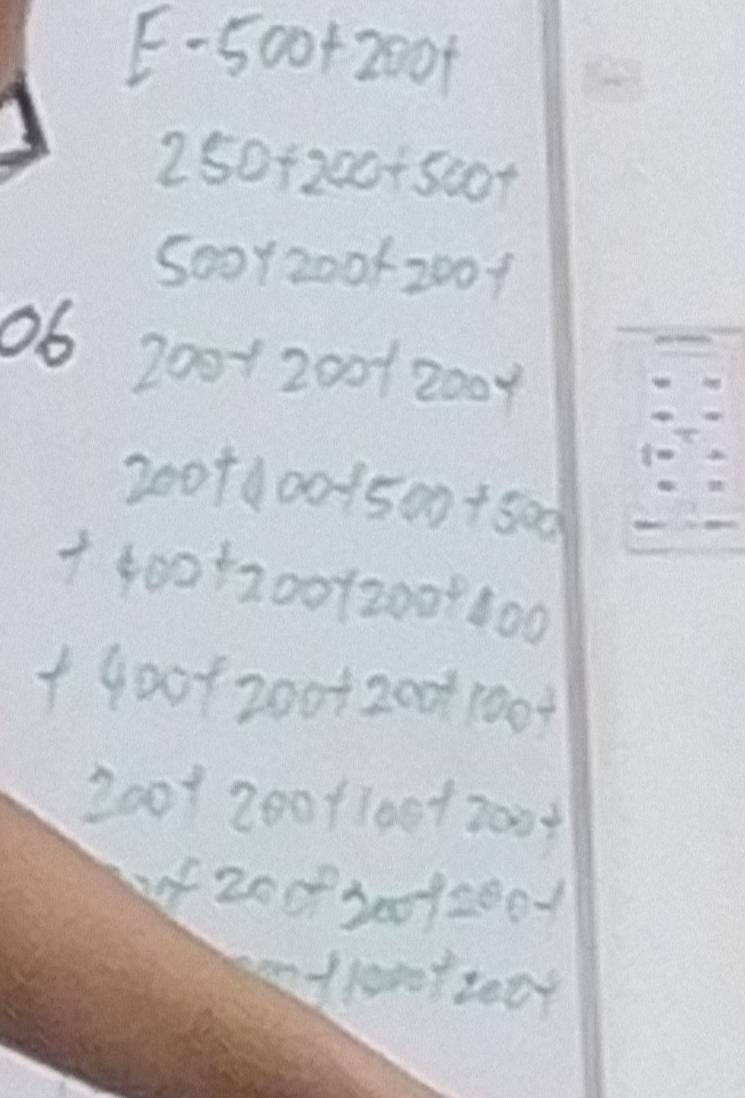 E-500+200+
250+200+500+
500+200+200+
06
200+200+200+
200+400+500+500
+400+200+200+
+400+200+200+100+
200+200+100+200+
+200+200+200+
+200+